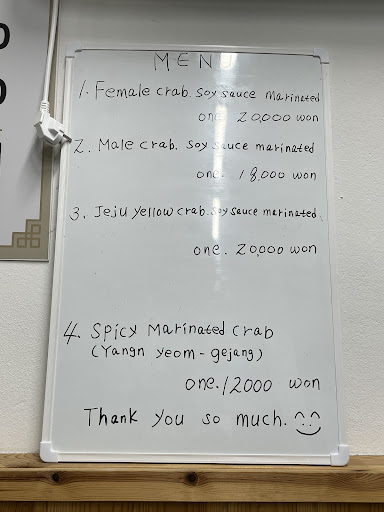 MENU
1. Female crab. soy sauce marinated
one. 20,000 won
2. Male crab. soy sauce marinated
one. 18,000 won
3. Jeju yellow crab. soy sauce marinated.
one. 20,000 won
4. Spicy Marinated crab
(Yangn yeom-gejang)
one. 12000 won
Thank you so much.